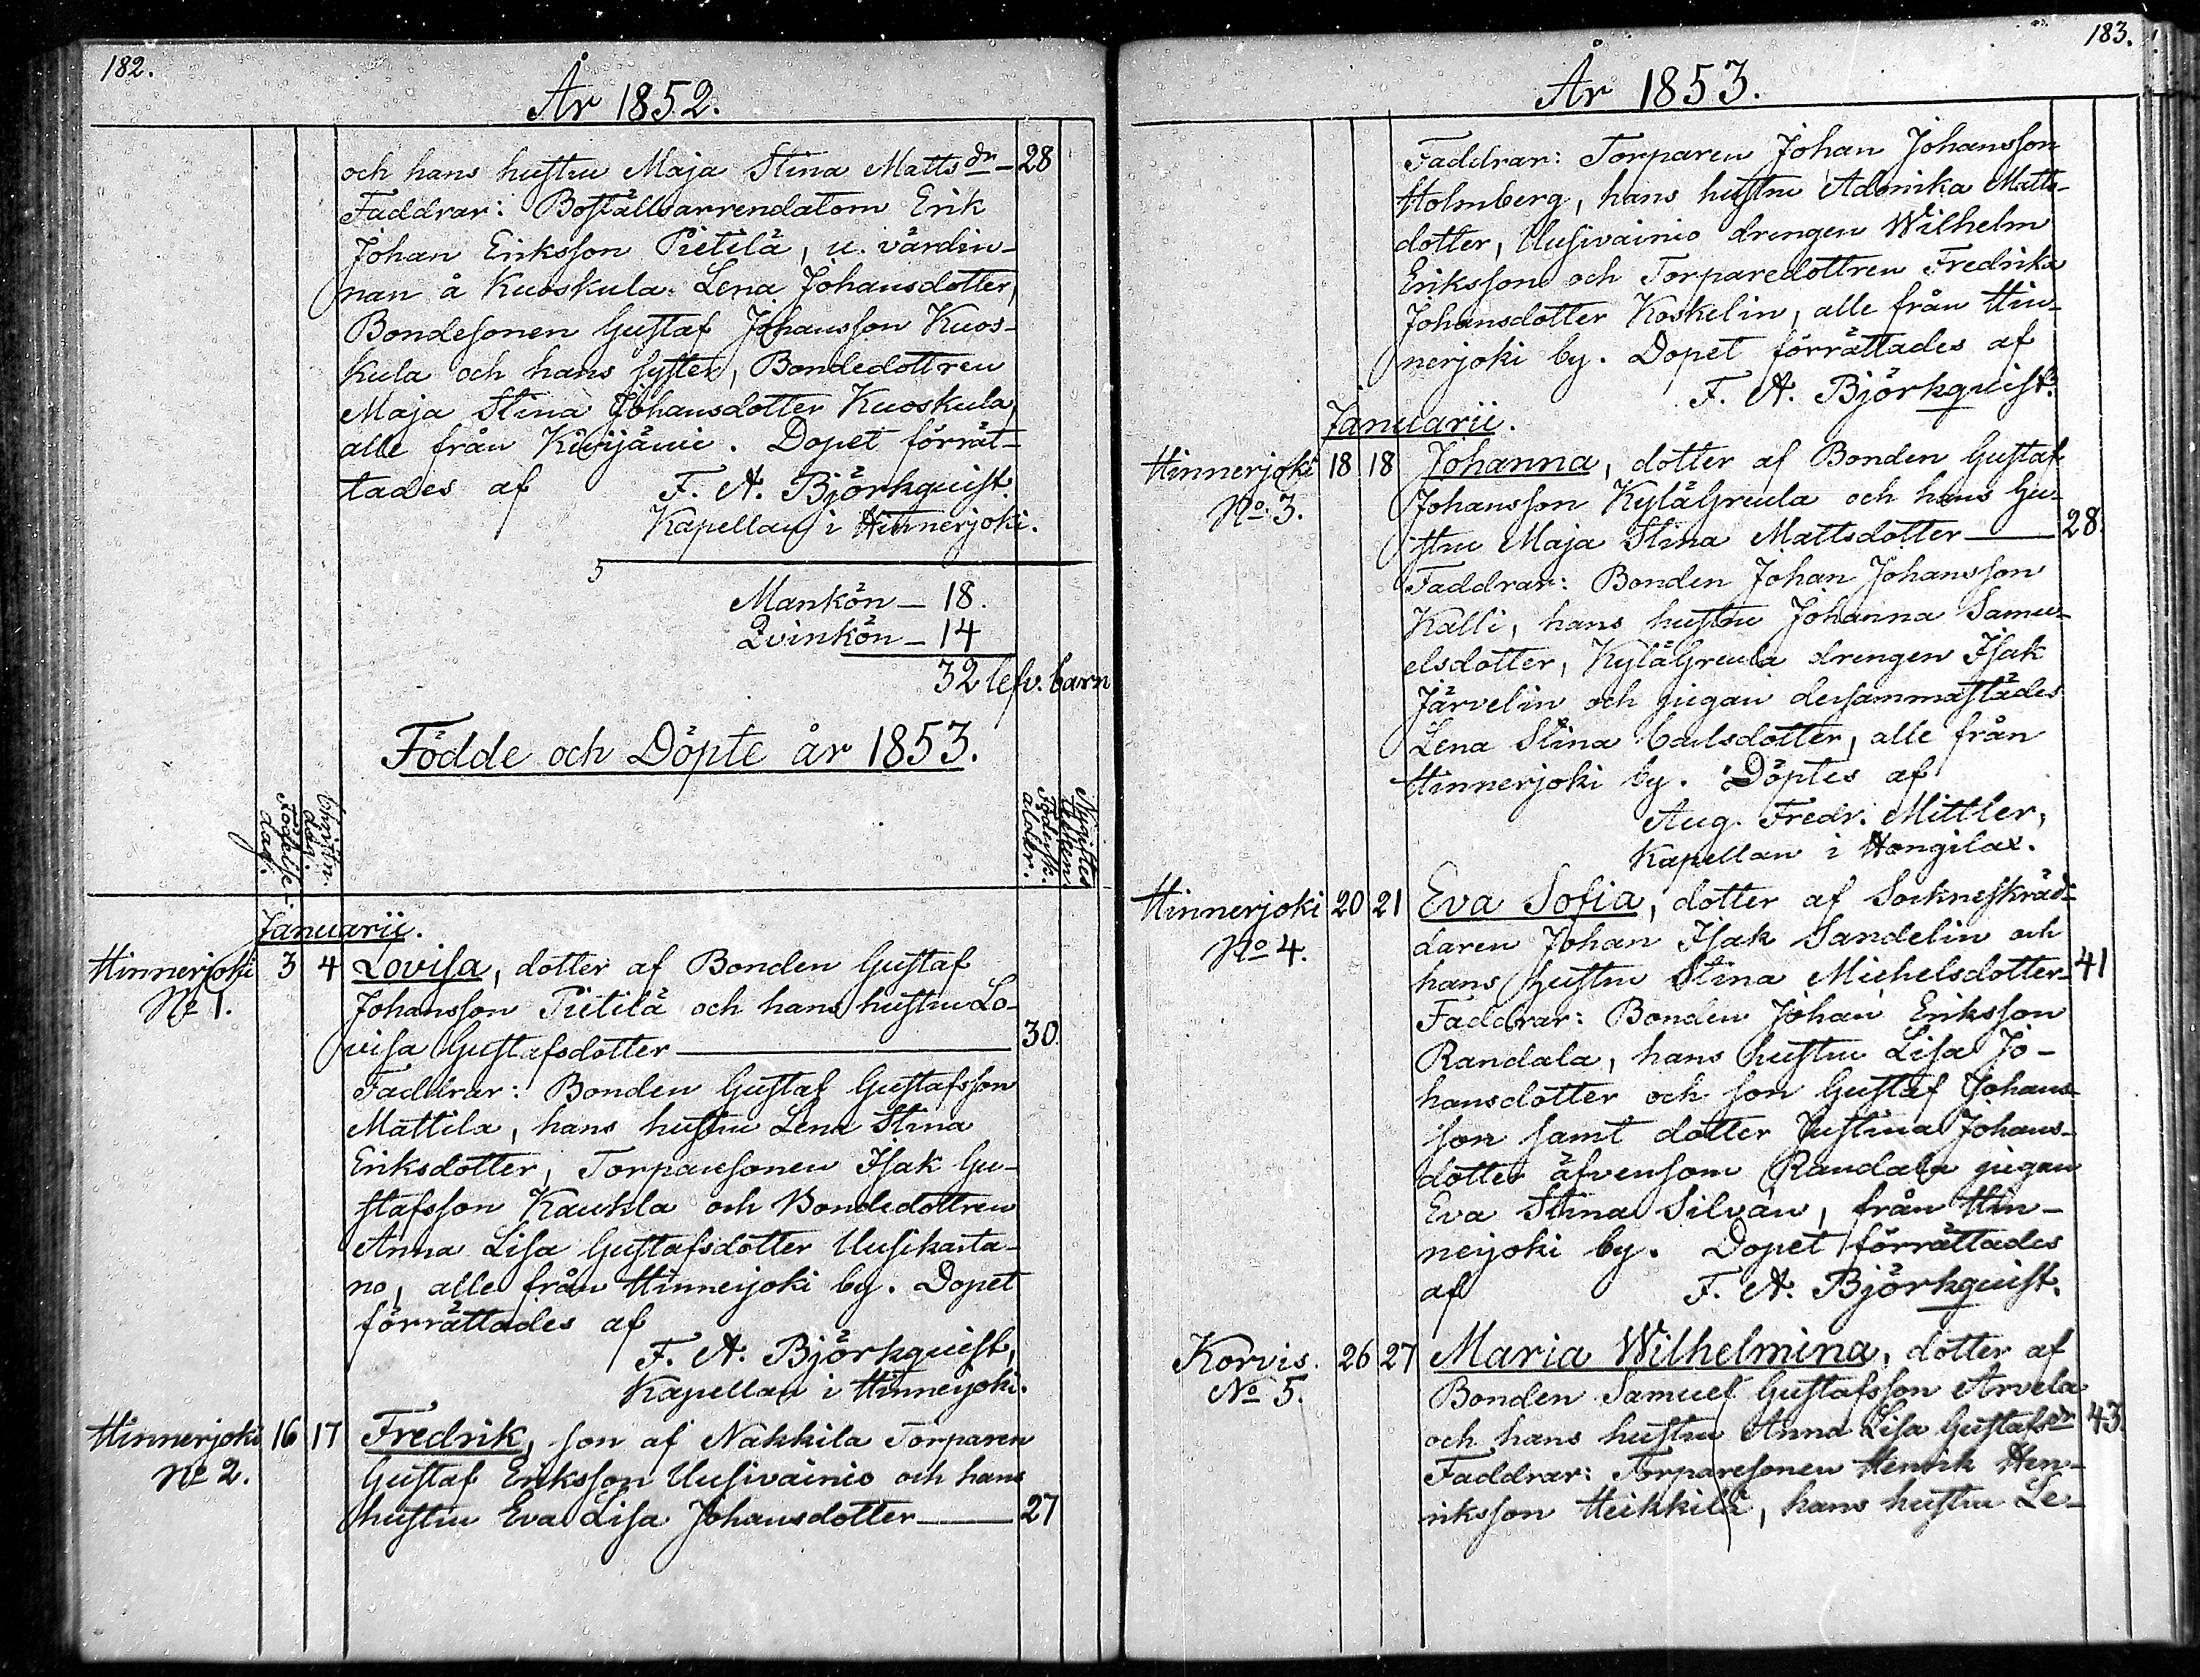 182.
År 1852.
och hans hustru Maja Stina Matts dr — 28
Faddrar: Boställsarrendatorn Erik
Johan Eriksson Pietilä, u. värdin-
nan å Kuoskula Lena Johansdotter,
Bondesonen Gustaf Johansson Kuos-
kula och hans syster, Bondedottren
Maja Stina Johansdotter Kuoskula,
alle från . Dopet förrät-
tades af F. A. Björkquist.
Kapellan i Hinnerjoki.
Mankön — 18.
Qvinkön — 14
32 lefv. barn
Födde och Döpte år 1853.
Födelse dag.
Christn. dag.
Föderssk. ålder.
Januarii.
Hinnerjoki 3 4 Lovisa, dotter af Bonden Gustaf
No 1. Johansson Pietilä och hans hustru Lo-
visa Gustafsdotter — 30
Faddrar: Bonden Gustaf Gustafsson
Mattila, hans hustru Lena Stina
Eriksdotter, Torparesonen Isak Gu-
stafsson Kaukla och Bondedottren
Anna Lisa Gustafsdotter Uusikarta-
no, alle från Hinnerjoki by. Dopet
förrättades af
F. A. Björkquist,
Kapellan i Hinnerjoki.
Hinnerjoki 16 17 Fredrik, son af Näkkilä Torparen
No 2. Gustaf Eriksson Uusivainio och hans
hustru Eva Lisa Johansdotter — 27
183.
År 1853.
Faddrar: Torparen Johan Johansson
Holmberg, hans hustru Matts-
dotter, Uusivainio drengen Wilhelm
Eriksson och Torparedottren Fredrika
Johansdotter Koskelin, alle från Hin-
nerjoki by. Dopet förrättades af
F. A. Björkquist.
Januarii.
Hinnerjoki 18 18 Johanna, dotter af Bonden Gustaf
No 3. Johansson Kylägreula och hans hu-
stru Maja Stina Mattsdotter — 28.
Faddrar: Bonden Johan Johansson
Kalli, hans hustru Johanna Samu-
elsdotter, Kylägreula drengen Isak
Järvelin och pigan dersammastädes
Lena Stina Carlsdotter, alle från
Hinnerjoki by. Döptes af
Aug. Fredr. Mittler,
Kapellan i Hongilax.
Hinnerjoki 20 21 Eva Sofia, dotter af Sockneskräd-
No 4. daren Johan Isak Sandelin och
hans hustru Stina Michelsdotter — 41
Faddrar: Bonden Johan Eriksson
Randala, hans hustru Lisa Jo-
hansdotter och son Gustaf Johans-
son samt dotter Justina Johans-
dotter äfvensom Randala pigan
Eva Stina Silván, från Hin-
nerjoki by. Dopet förrättades
af F. A. Björkquist.
Korvis. 26 27 Maria Wilhelmina, dotter af
No 5. Bonden Samuel Gustafsson Arvela
och hans hustru Anna Lisa Gustafs dr 43.
Faddrar: Torparesonen Henrik Hen-
riksson Heikkilä, hans hustru Le-